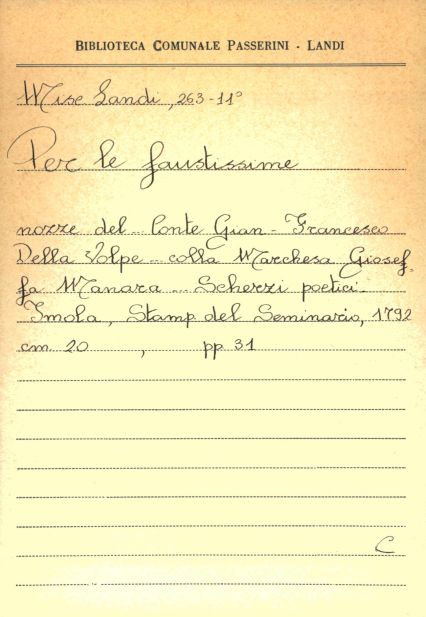 BIBLIOTECA COMUNALE PASSERINI - LANDI
Misc Landi, 263-11°
Per le faustissime
nozze del.. Conte Gian-Francesco
Della Volpe.. colla Marchesa Giosef-
fa Manara... Scherzi poetici.
Imola, Stamp del Seminario, 1792
cm 20 , pp 31
C